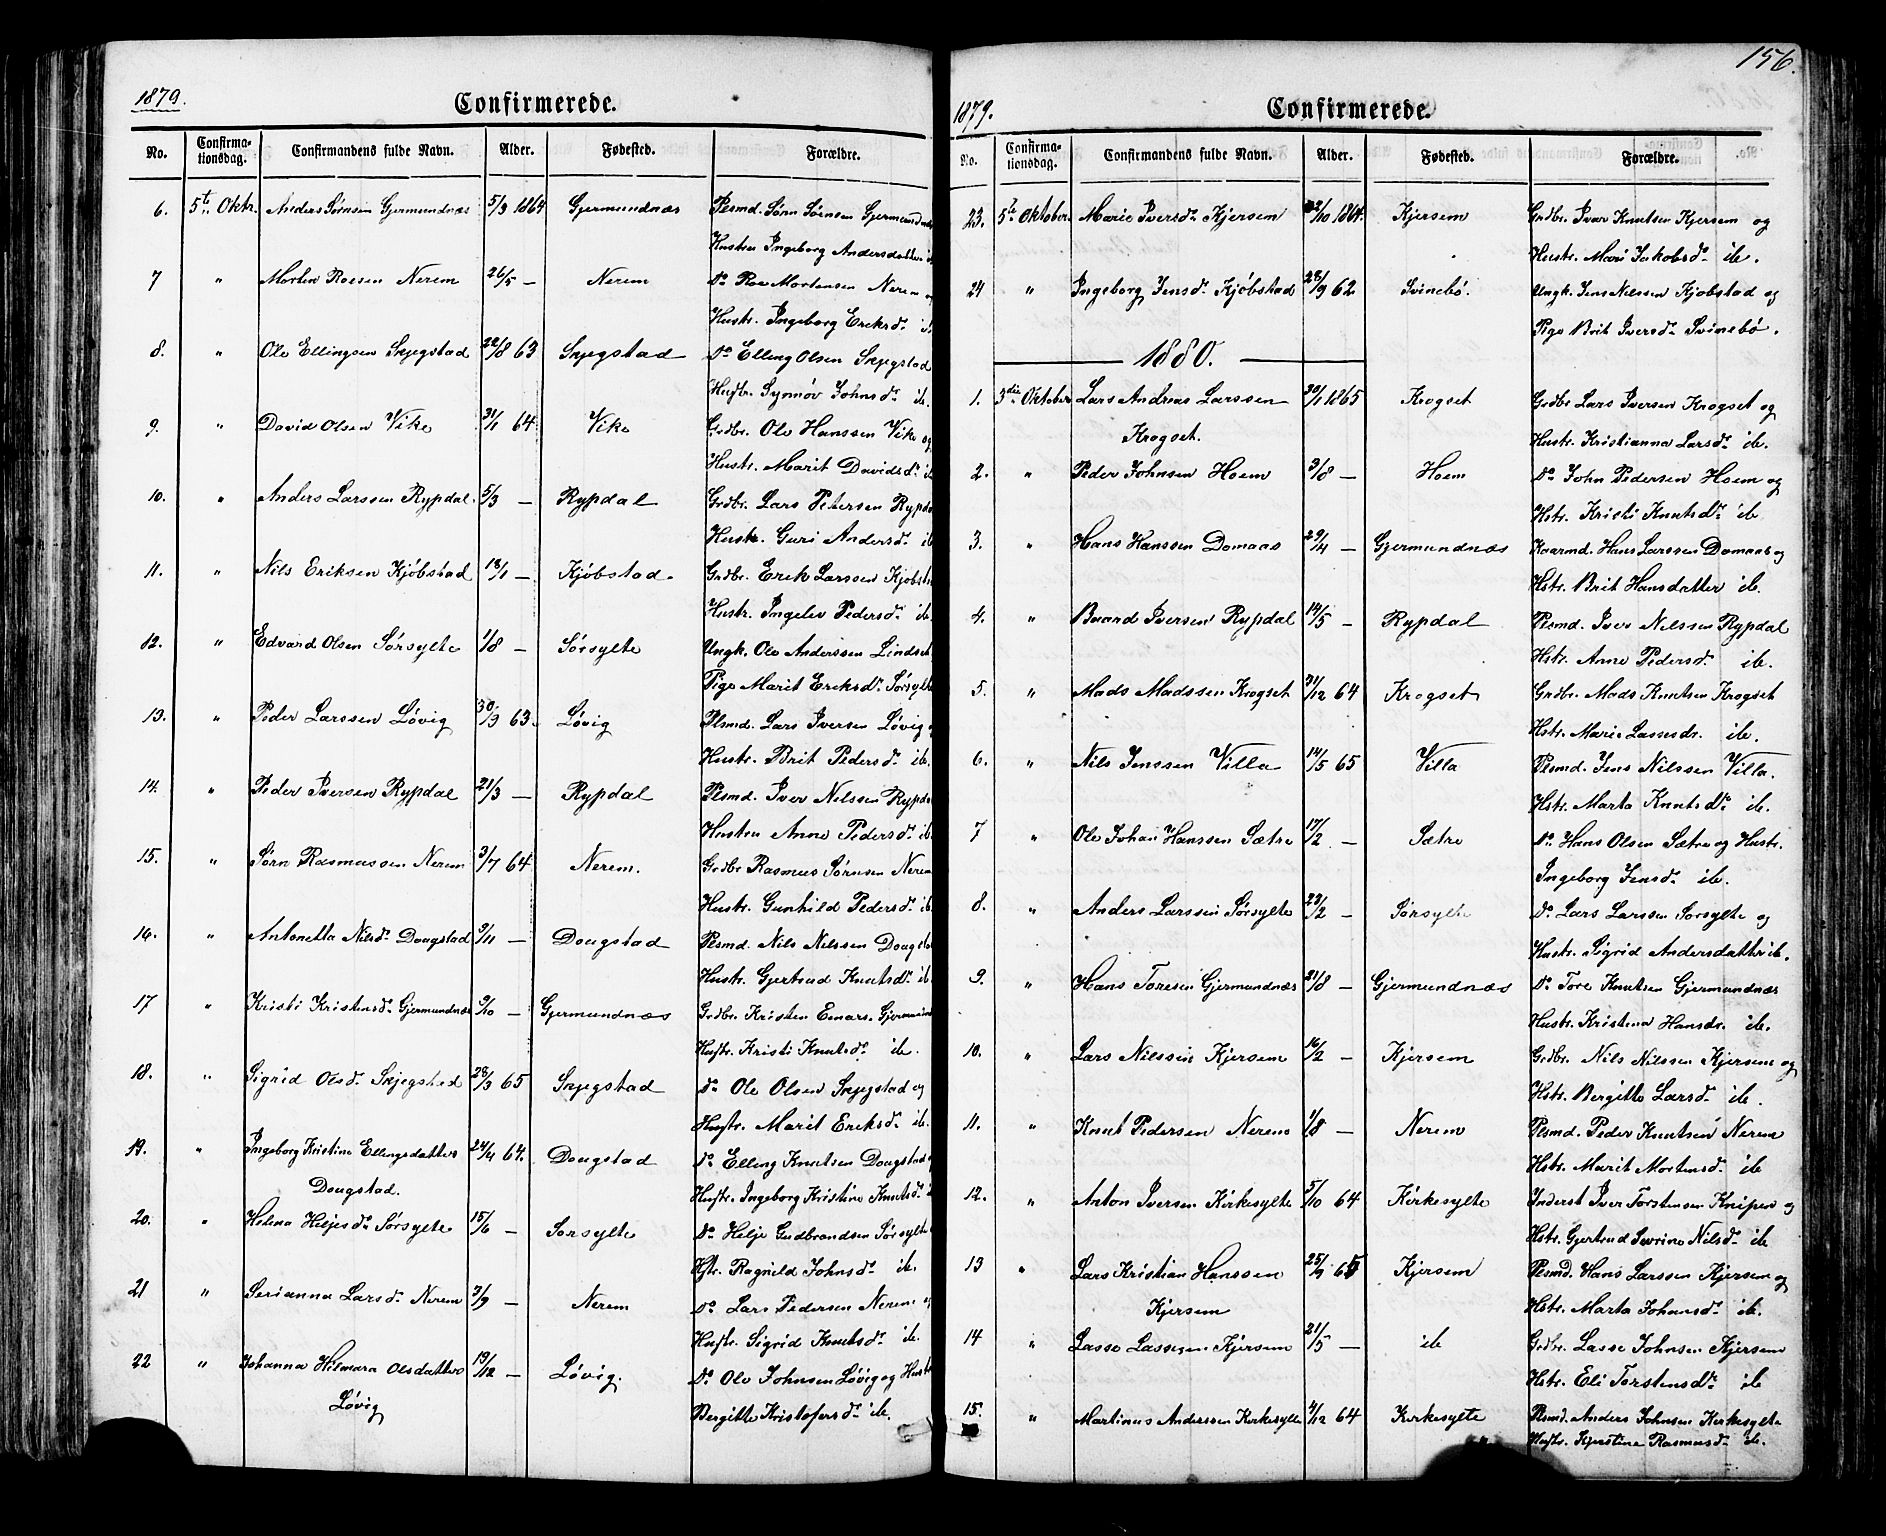 1879.
Confirmerede.
No. Confirma-tionsdag. Confirmandens fulde Navn. Alder. Fødested. Forældre.
6. 5te Oktr. Anders Sørnsen Gjermundnæs 5/3 1864 Gjermundnæs Plsmd. Sørn Sørnsen Gjermundnæs
Hustru Ingeborg Andersdatter
7 " Morten Roesen Nerem 26/5 — Nerem Do Roe Mortensen Nerem og
Hustr. Ingeborg Eriksd.
8. " Ole Ellingsen Skjegstad 22/8 63 Skjegstad Do Elling Olsen Skjegstad
Hustr. Synnøv Johnsd. ib.
9. " David Olsen Vike 31/1 64 Vike Grdbr. Ole Hanssen Vike og
Hustr. Marit Davidsd. ib
10. " Anders Larssen Rypdal. 5/3 — Rypdal Grdbr. Lars Petersen Rypda
Hustr. Guri Andersd. ib
11. " Nils Eriksen Kjøbstad 18/1 — Kjøbstad. Grdbr. Erik Larssen Kjøbst
Hustr. Ingelev Pedersd. ib.
12. " Edvard Olsen Sørsylte 1/8 — Sørsylte Ungk. Ole Anderssen Lindset
Pige Marit Eriksd. Sørsylte
13. " Peder Larssen Løvig 30/3 63. Løvig Plsmd. Lars Iversen Løvig
Hustr. Brit Pedersd. ib.
14. " Peder Iversen Rypdal 21/3 — Rypdal Plsmd. Iver Nilssen Rypda
Hustru Anne Pedersd. ib
15. " Sørn Rasmussen Nerem 3/7 64 Nerem. Grdbr Rasmus Sørnsen Nerem
Hustr. Gunhild Pedersd. ib.
16. " Antonetta Nilsd. Dougstad 9/11 — Dougstad Plsmd. Nils Nilssen Dougsta
Hustr. Gjertrud Knutsd. ib.
17 " Kristi Kristensd. Gjermundnæs 9/10 — Gjermundnæs Grdbr. Kristen Einars. Gjermund
Hustr. Kristi Knutsd. ib.
18. " Sigrid Olsd. Skjegstad 28/3 65 Skjegstad Do Ole Olsen Skjegstad og
Hustr. Marit Eriksd. ib.
19. " Ingeborg Kristine Ellingsdatter 24/4 64. Dougstad Do Elling Knutsen Dougstad
Dougstad. Hustr. Ingeborg Kristine Knutsd.
20. " Helena Heljesd. Sørsylte 15/6 — Sørsylte Do Helje Gudbrandsen Sørsylte
Hstr. Ragnild Johnsd. ib.
21 " Serianna Larsd. Nerem 7/9 — Nerem Do Lars Pedersen Nerem
Hustr. Sigrid Knutsd. ib.
22 " Johanna Hilmara Olsdatter 19/12 — Løvig. Do Ole Johnsen Løvig og Hustr
Løvig Bergitte Kristofersd. ib.
156.
1879.
Confirmerede.
No. Confirma-tionsdag. Confirmandens fulde Navn. Alder. Fødested. Forældre.
23. 5te Oktober Marie Iversd. Kjersem 22/10 1864. Kjersem Grdbr. Ivar Knutsen Kjersem og
Hustr. Mari Jakobsd. ib.
24 " Ingeborg Jensd. Kjøbstad 28/9 62 Svinebø. Ungk. Jens Nilssen Kjøbstad og
Pige Brit Iversd. Svinebø.
1880.
1. 3die Oktober Lars Andreas Larssen 30/1 1865 Krogset Grdbr Lars Iversen Krogset og
Krogset. Hustr. Kristianna Larsd. ib.
2. " Peder Johnsen Hoem 3/8 — Hoem Do John Pedersen Hoem og
Hstr. Kristi Knutsd. ib
3. " Hans Hanssen Domaas 29/4 — Gjermundnæs Kaarmd. Hans Larssen Domaas og
Hstr. Brit Hansdatter ib.
4. " Baard Iversen Rypdal 14/5 — Rypdal Plsmd. Iver Nilssen Rypdal
Hstr. Anne Pedersd. ib.
5. " Mads Madssen Krogset 31/12 64 Krogset Grdbr. Mads Knutsen Krogset
Hstr. Marie Lassesdr. ib.
6. " Nils Jenssen Villa 14/5 65 Villa Plsmd. Jens Nilssen Villa.
Hstr. Marta Knutsd. ib.
7 " Ole Johan Hanssen Sætre 17/2 — Sætre Do Hans Olsen Sætre og Hustr.
Ingeborg Jensd. ib.
8. " Anders Larssen Sørsylte 23/2 — Sørsylte Do Lars Larssen Sorsylte og
Hustr. Sigrid Andersdatter ib.
9. " Hans Toresen Gjermundnæs 21/8 — Gjermundnæs Do Tore Knutsen Gjermundnæs
Hustr. Kristina Hansdr. ib.
10. " Lars Nilssen Kjersem 16/2 — Kjersem Grdbr. Nils Nilssen Kjersem og
Hstr. Bergitte Larsd. ib.
11. " Knut Pedersen Nerem 1/8 — Nerem Plsmd. Peder Knutsen Nerem
Hstr. Marit Mortensd. ib
12. " Anton Iversen Kirkesylte 5/10 64 Kirkesylte Inderst Iver Torstensen Kniper og
Hstr. Gjertrud Sevrine Nilsd. ib
13 " Lars Kristian Hanssen 25/9 65 Kjersem Plsmd. Hans Larssen Kjersem og
Kjersem Hstr. Marta Johansd. ib.
14 " Lasse Lassesen Kjersem 21/5 — ib Grdbr. Lasse Johnsen Kjersem
Hstr. Eli Torstensd. ib
15. " Martinus Anderssen Kirkesylte 4/12 64 Kirkesylte Plsmd. Anders Johnsen Kirkesylte
Hustr. Kjerstine Rasmusd. ib.